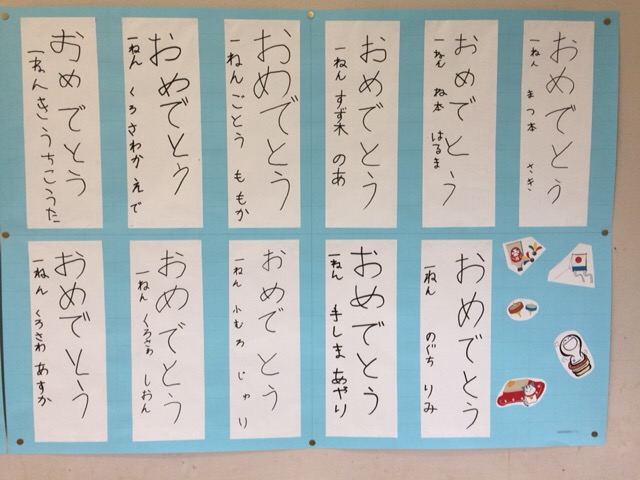 おめでとう
一ねん まつ本 さき
おめでとう
一ねん ね本 はるま
おめでとう
一ねん すず木 のあ
おめでとう
一ねん ごとう ももか
おめでとう
一ねん くろさわ かえで
おめでとう
一ねん きうちこうた
おめでとう
一ねん のぐち りみ
おめでとう
一ねん 手しま あやり
おめでとう
一ねん 小もろ じゅり
おめでとう
一ねん くろさわ しおん
おめでとう
一ねん くろさわ あすか